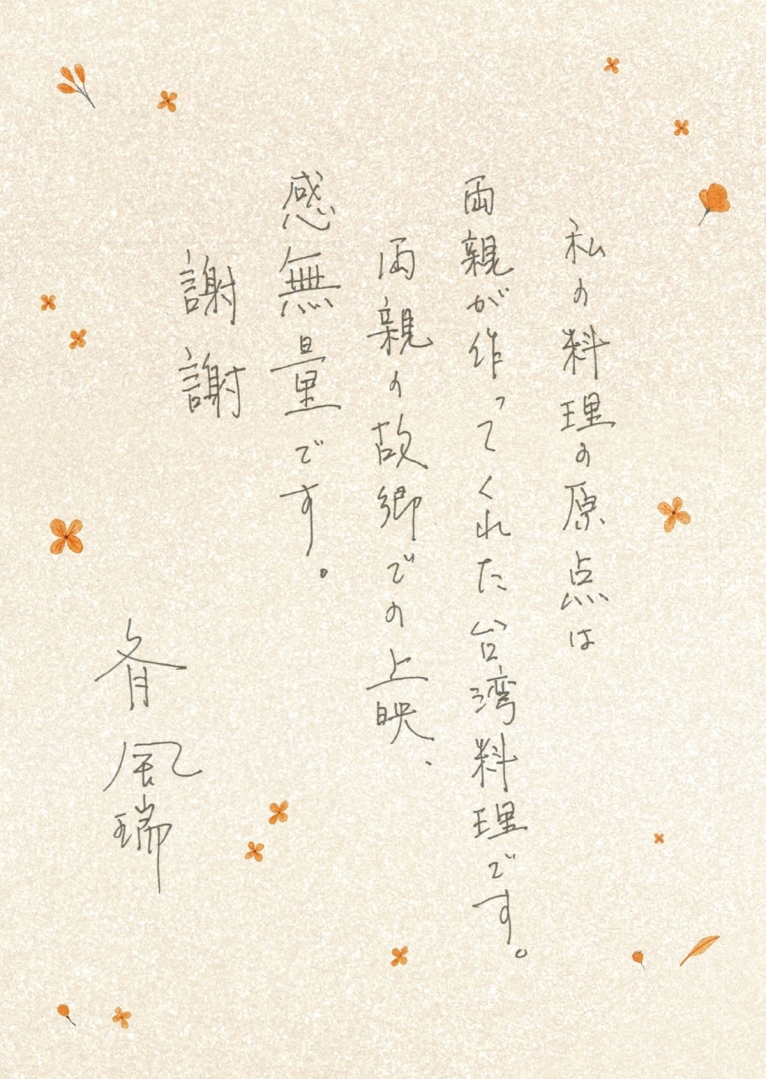 私の料理の原点は
両親が作ってくれた台湾料理です。
両親の故郷での上映、
感無量です。
謝謝
斉風瑞